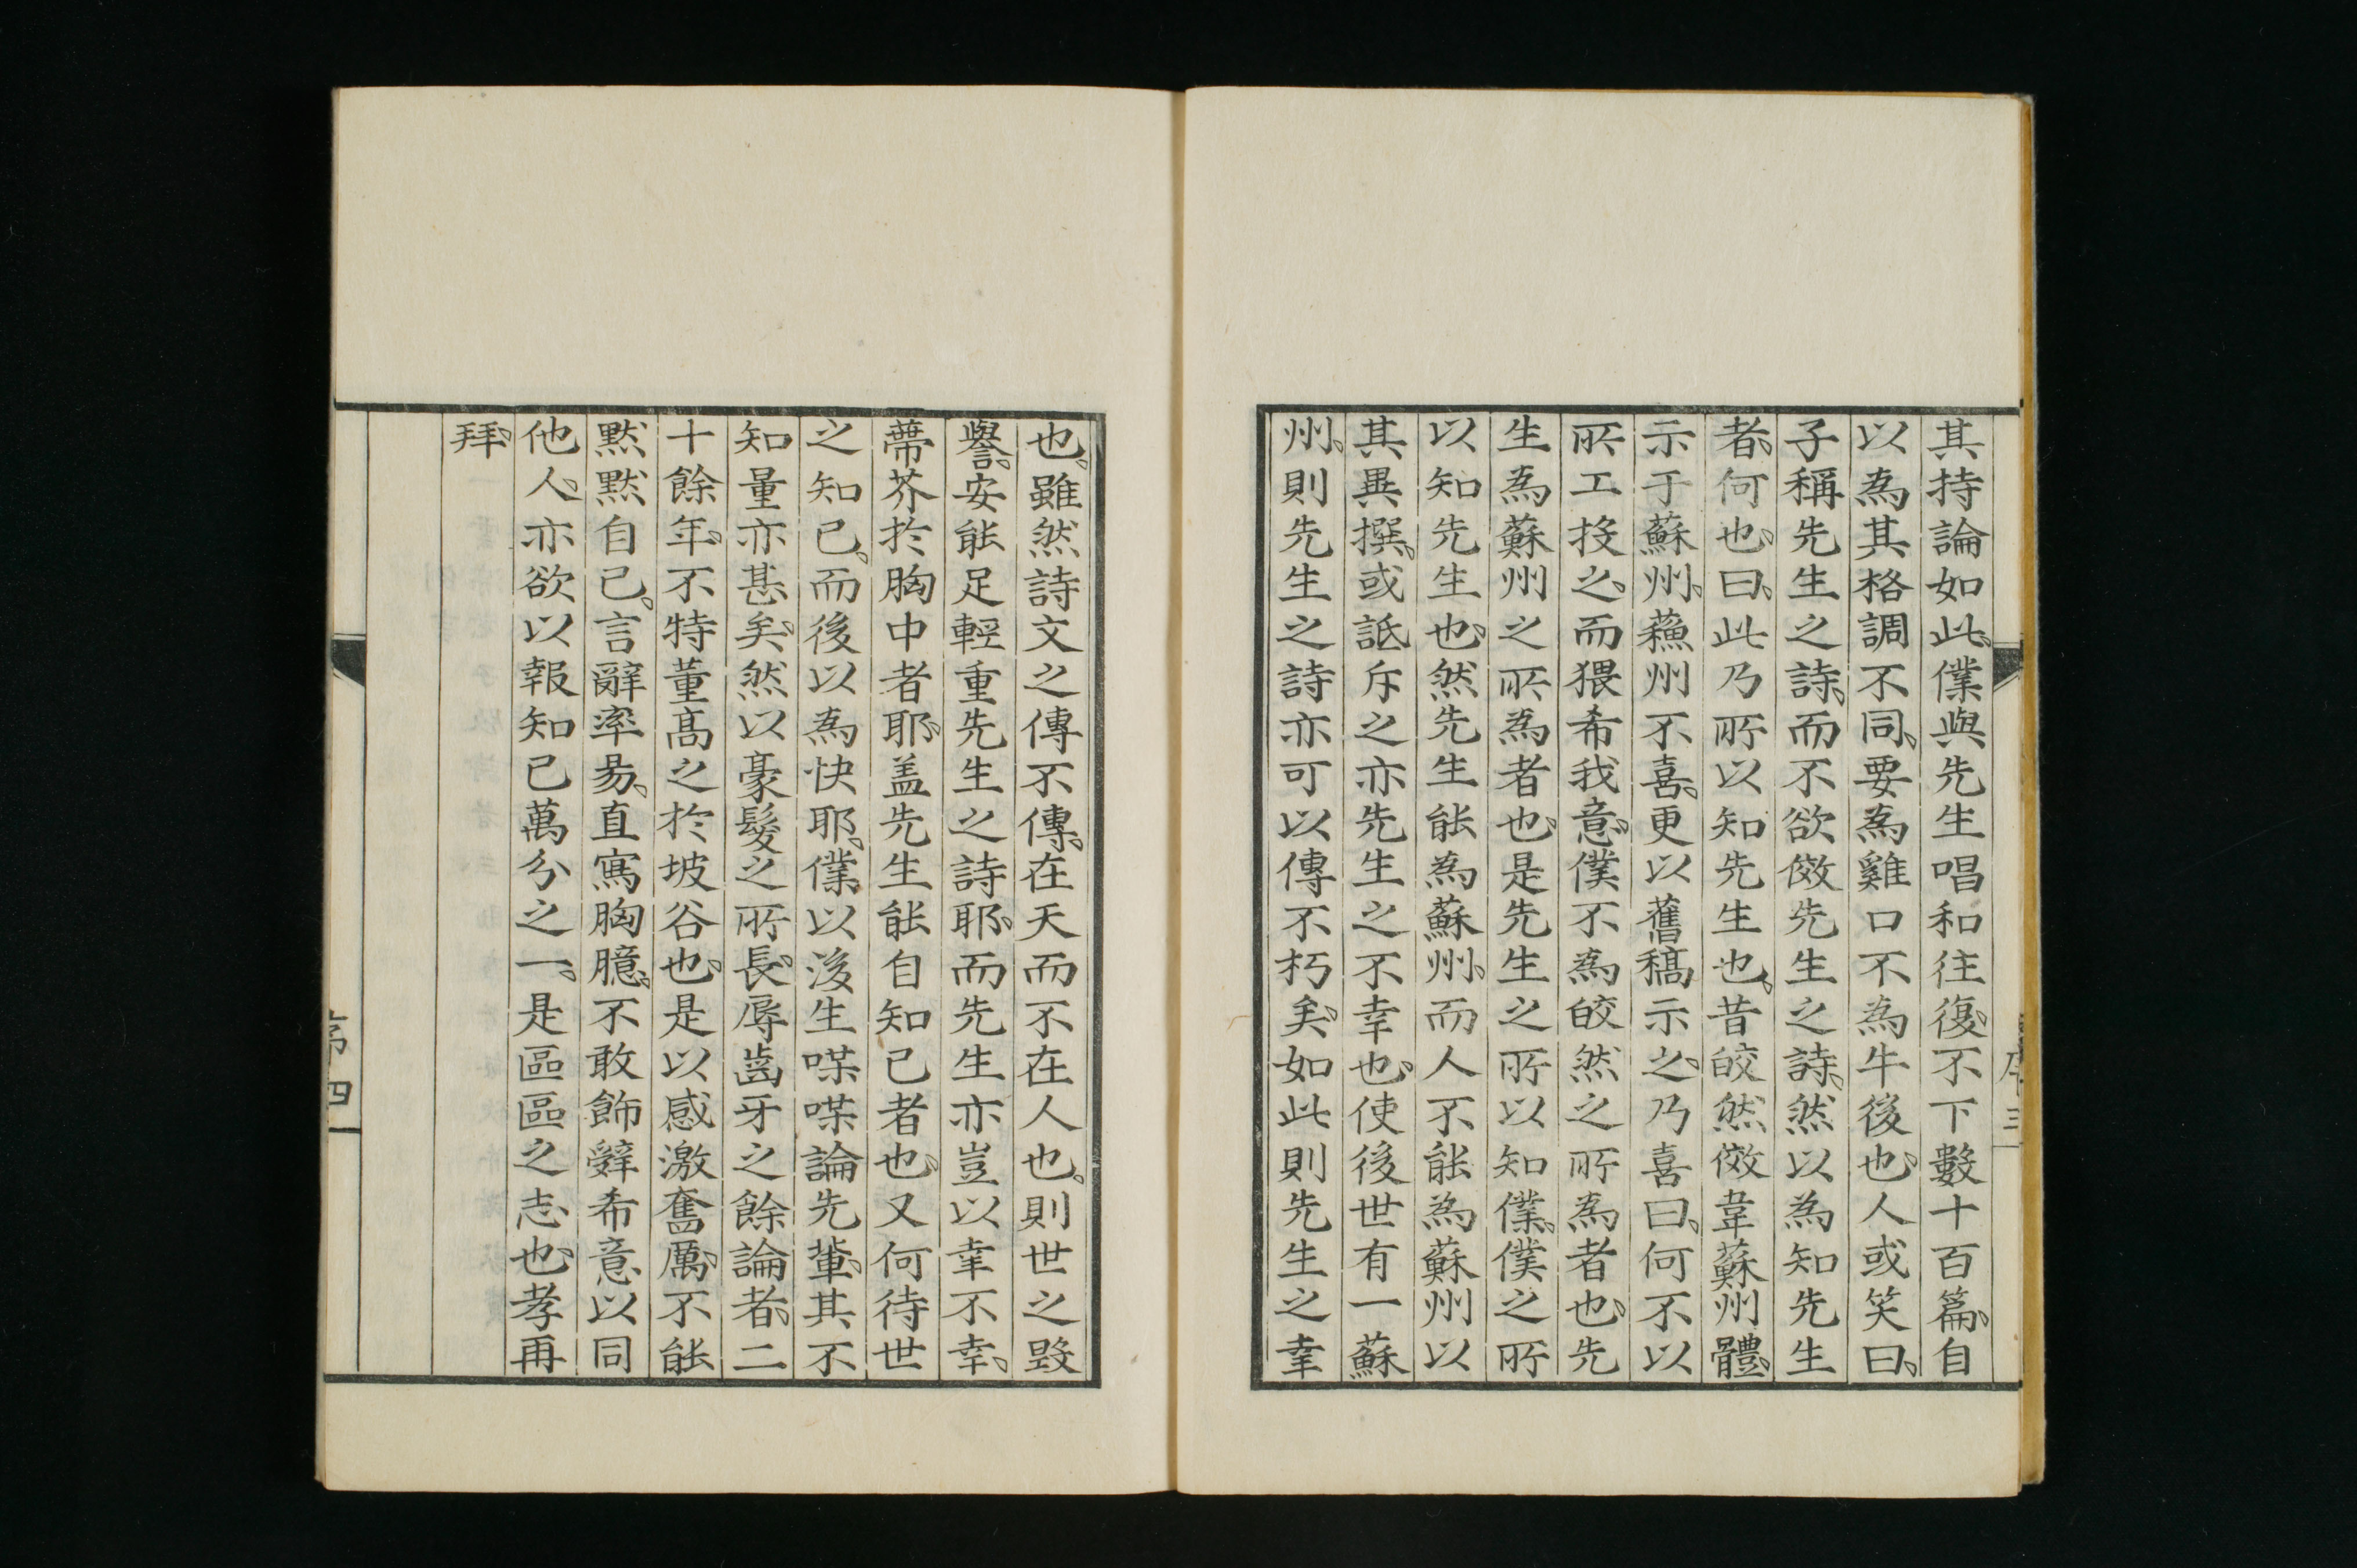 其持論如此、僕與先生唱和往復、不下數十百篇、自
以為其格調不同、要為雞口不為牛後也、人或笑曰、
子稱先生之詩、而不欲傚先生之詩、然以為知先生
者、何也、曰、此乃所以知先生也、昔皎然傚韋蘇州體、
示于蘇州、蘓州不喜、更以舊稿示之、乃喜曰、何不以
所工投之、而猥希我意、僕不為皎然之所為者也、先
生為蘇州之所為者也、是先生之所以知僕、僕之所
以知先生也、然先生能為蘇州、而人不能為蘇州以
其異撰、或詆斥之亦先生之不幸也、使後世有一蘇
州、則先生之詩亦可以傳不朽矣、如此則先生之幸
也、雖然詩文之傳不傳、在天而不在人也、則世之毀
譽、安能足輕重先生之詩耶、而先生亦豈以幸不幸、
蔕芥於胸中者耶、盖先生能自知己者也、又何待世
之知己、而後以為快耶、僕以後生喋喋論先輩、其不
知量亦甚矣、然以豪髮之所長、辱齒牙之餘論者、二
十餘年、不特董高之於坡谷也、是以感激奮厲、不能
默默自已、言辭率易、直寫胸臆、不敢飾辭希意以同
他人、亦欲以報知己萬分之一、是區區之志也、孝再
拜、
序三
序四